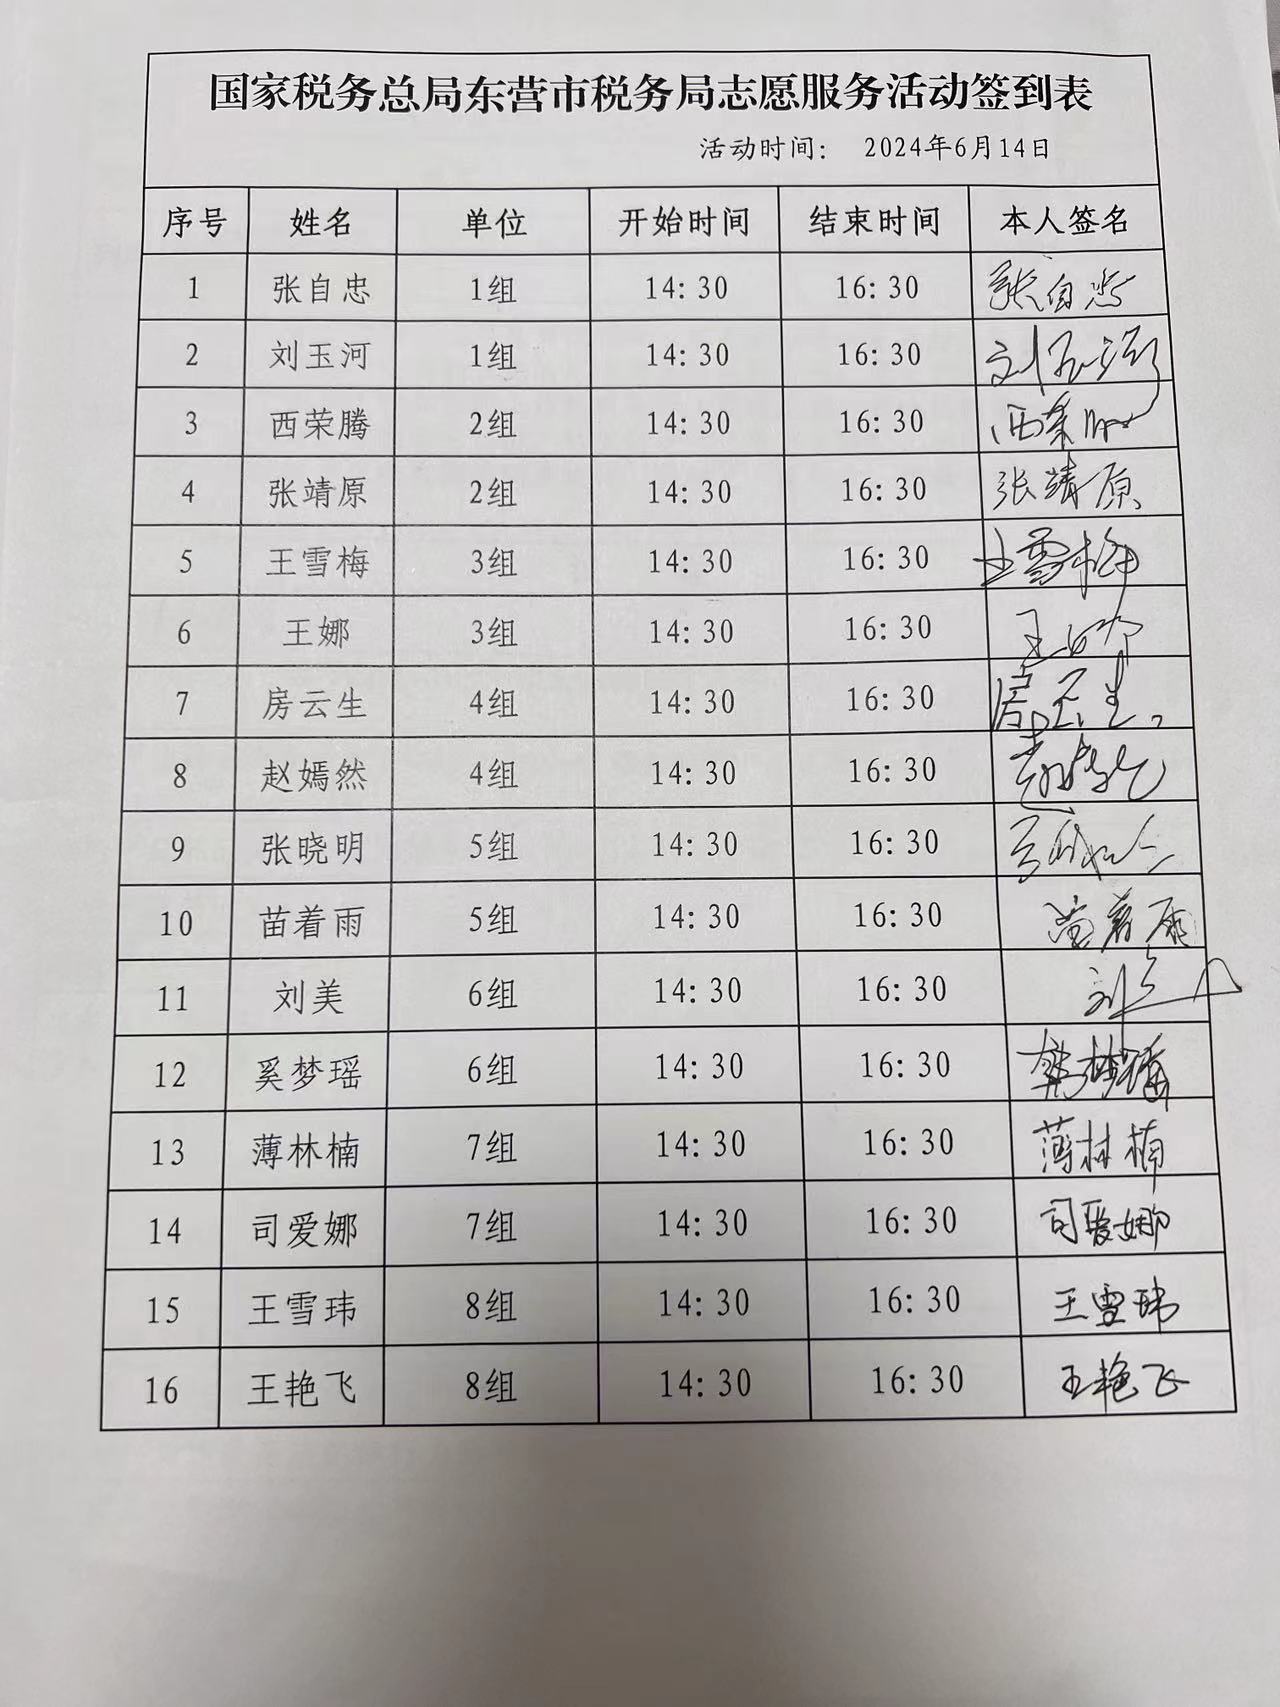 国家税务总局东营市税务局志愿服务活动签到表
活动时间： 2024年6月14日
序号 姓名 单位 开始时间 结束时间 本人签名
1 张自忠 1组 14:30 16:30 张自忠
2 刘玉河 1组 14:30 16:30 刘玉河
3 西荣腾 2组 14:30 16:30 西荣腾
4 张靖原 2组 14:30 16:30 张靖原
5 王雪梅 3组 14:30 16:30 王雪梅
6 王娜 3组 14:30 16:30 王娜
7 房云生 4组 14:30 16:30 房云生
8 赵嫣然 4组 14:30 16:30
9 张晓明 5组 14:30 16:30
10 苗着雨 5组 14:30 16:30 苗着雨
11 刘美 6组 14:30 16:30 刘美
12 奚梦瑶 6组 14:30 16:30
13 薄林楠 7组 14:30 16:30 薄林楠
14 司爱娜 7组 14:30 16:30 司爱娜
15 王雪玮 8组 14:30 16:30 王雪玮
16 王艳飞 8组 14:30 16:30 王艳飞